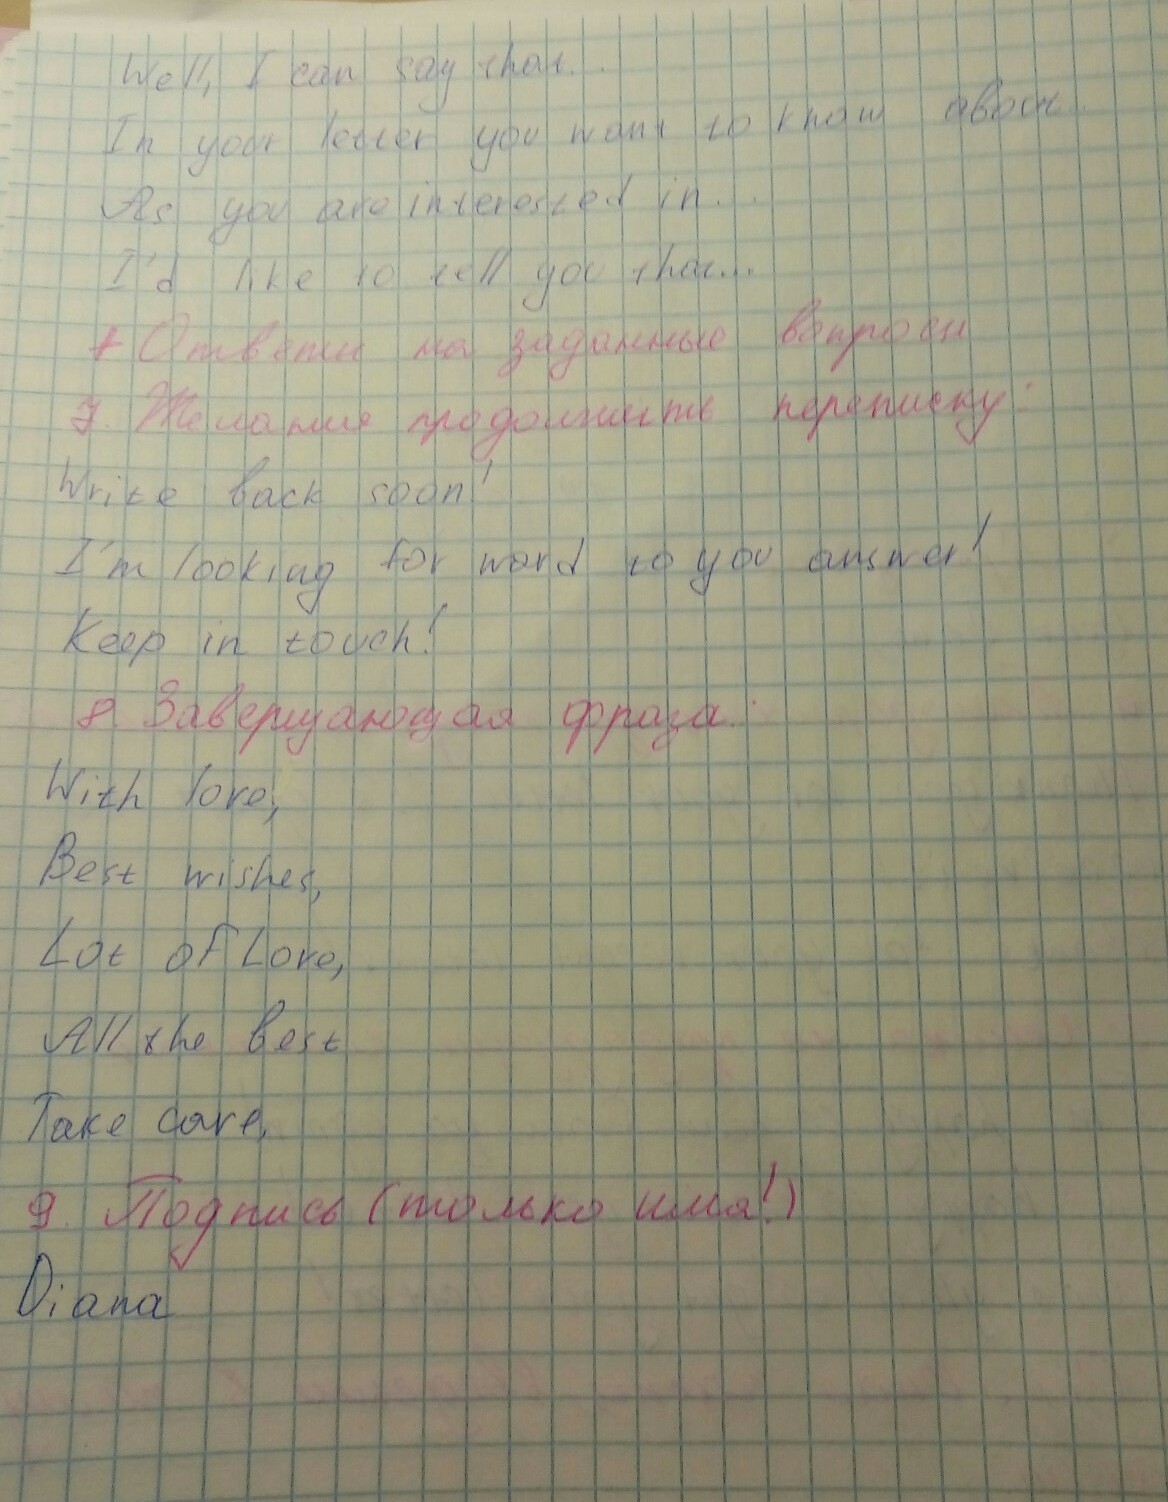 Well, I can say that...
In your letter you want to know about...
As you are interested in...
I'd like to tell you that...
+ Ответы на заданные вопросы
7. Желание продолжить переписку:
Write back soon!
I'm looking for word to you answer!
Keep in touch!
8. Завершающая фраза:
With love,
Best wishes,
Lot of Love,
All the best
Take care,
9. Подпись (только имя!)
Diana